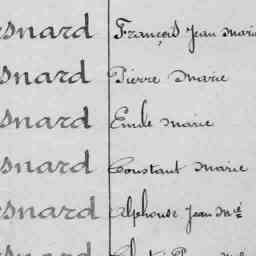 snard François Jean Marie
snard Pierre Marie
snard Emile Marie
snard Constant Marie
snard Alphonse Jean Mie
snard